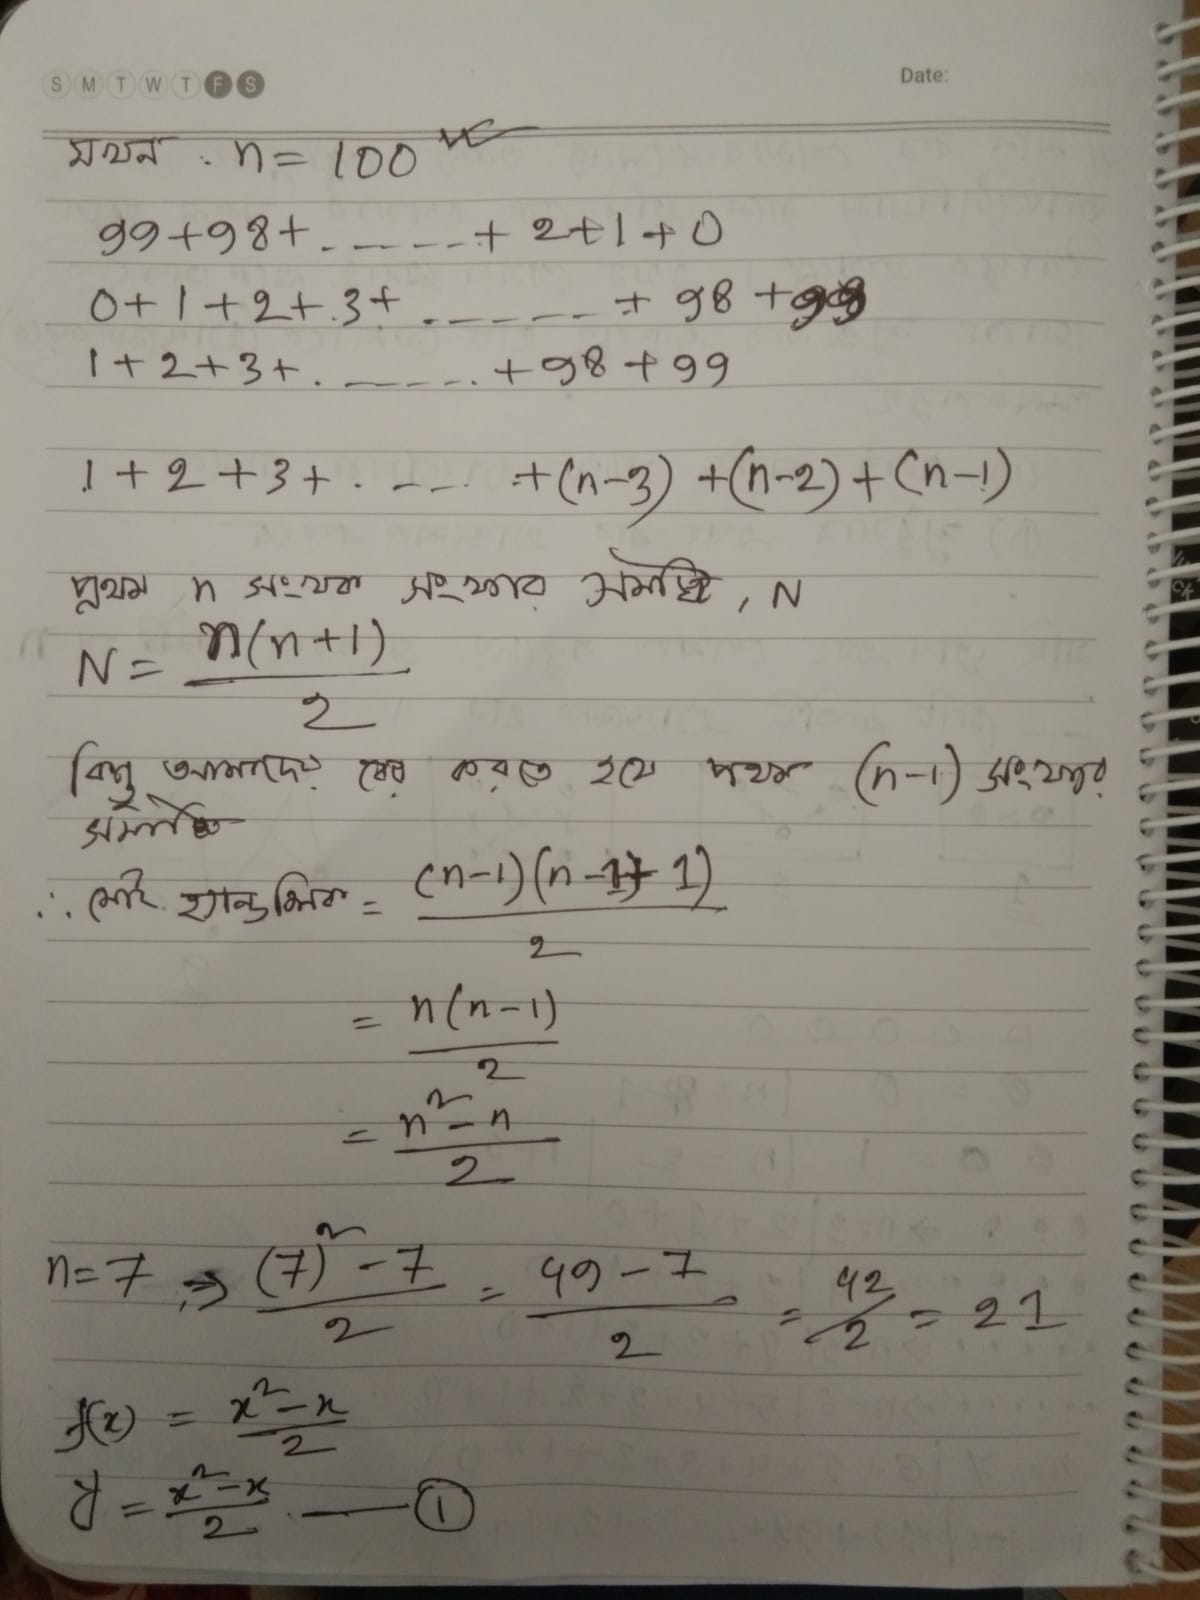 S M T W T F S
Date:
যখন . n = 100
99+98+. - - - - - + 2+1+0
0+1+2+.3+ . - - - - - - + 98 +99
1+2+3+. - - - - . +98+99
1+2+3+ . - - - . +(n-3) +(n-2)+(n-1)
প্রথম n সংখ্যক সংখ্যার সমষ্টি, N
N = n(n+1)/2
কিন্তু আমাদের বের করতে হবে প্রথম (n-1) সংখ্যার
সমষ্টি
∴ মোট হ্যান্ডশেক = (n-1)(n-1+1)/2
= n(n-1)/2
= n²-n/2
n=7 ⇒ (7)²-7/2 = 49-7/2 = 42/2 = 21
f(x) = x²-x/2
y = x²-x/2 —— ①